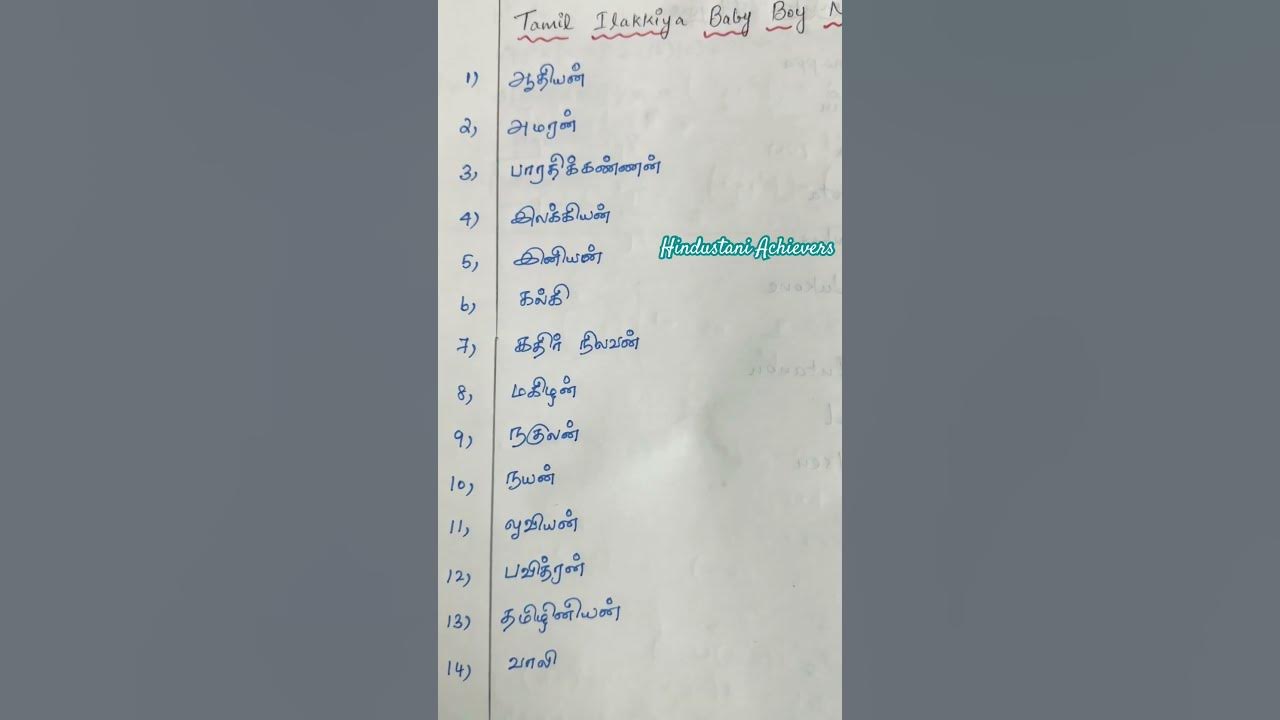 Tamil Ilakkiya Baby Boy N
1) ஆதியன்
2, அமரன்
3, பாரதிக்கண்ணன்
4) இலக்கியன்
Hindustani Achievers
5, இனியன்
6, கல்கி
7, கதிர் நிலவன்
8, மகிழன்
9, நகுலன்
10, நயன்
11, ஓவியன்
12, பவித்ரன்
13) தமிழினியன்
14) வாலி